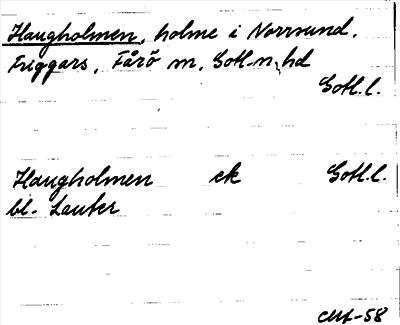 Haugholmen, holme i Norrsund,
Friggars, Fårö sn, Gotl. n. hd
Gotl. l.
Haugholmen ek Gotl. l.
bl. Lauter
-58